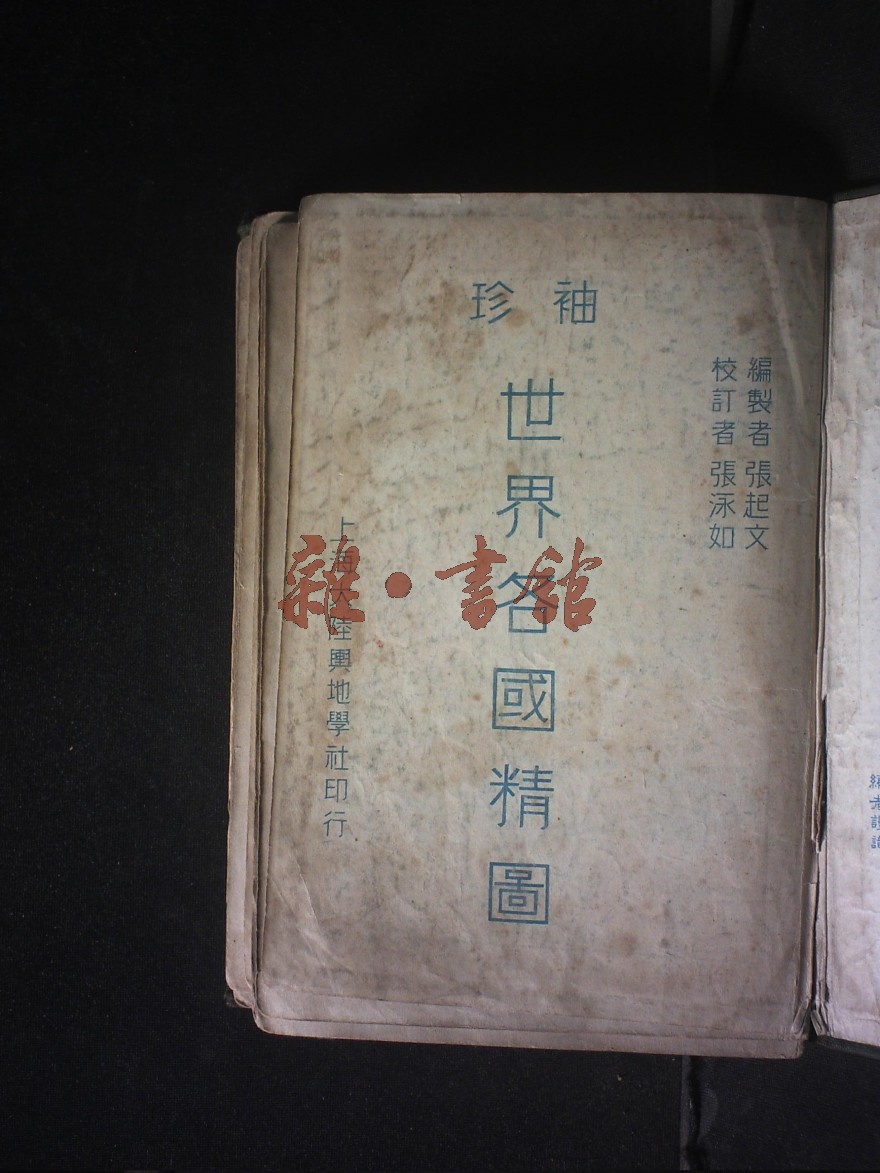 袖珍
編製者 張起文
校訂者 張泳如
世界各國精圖
上海大陸輿地學社印行
雜·書館